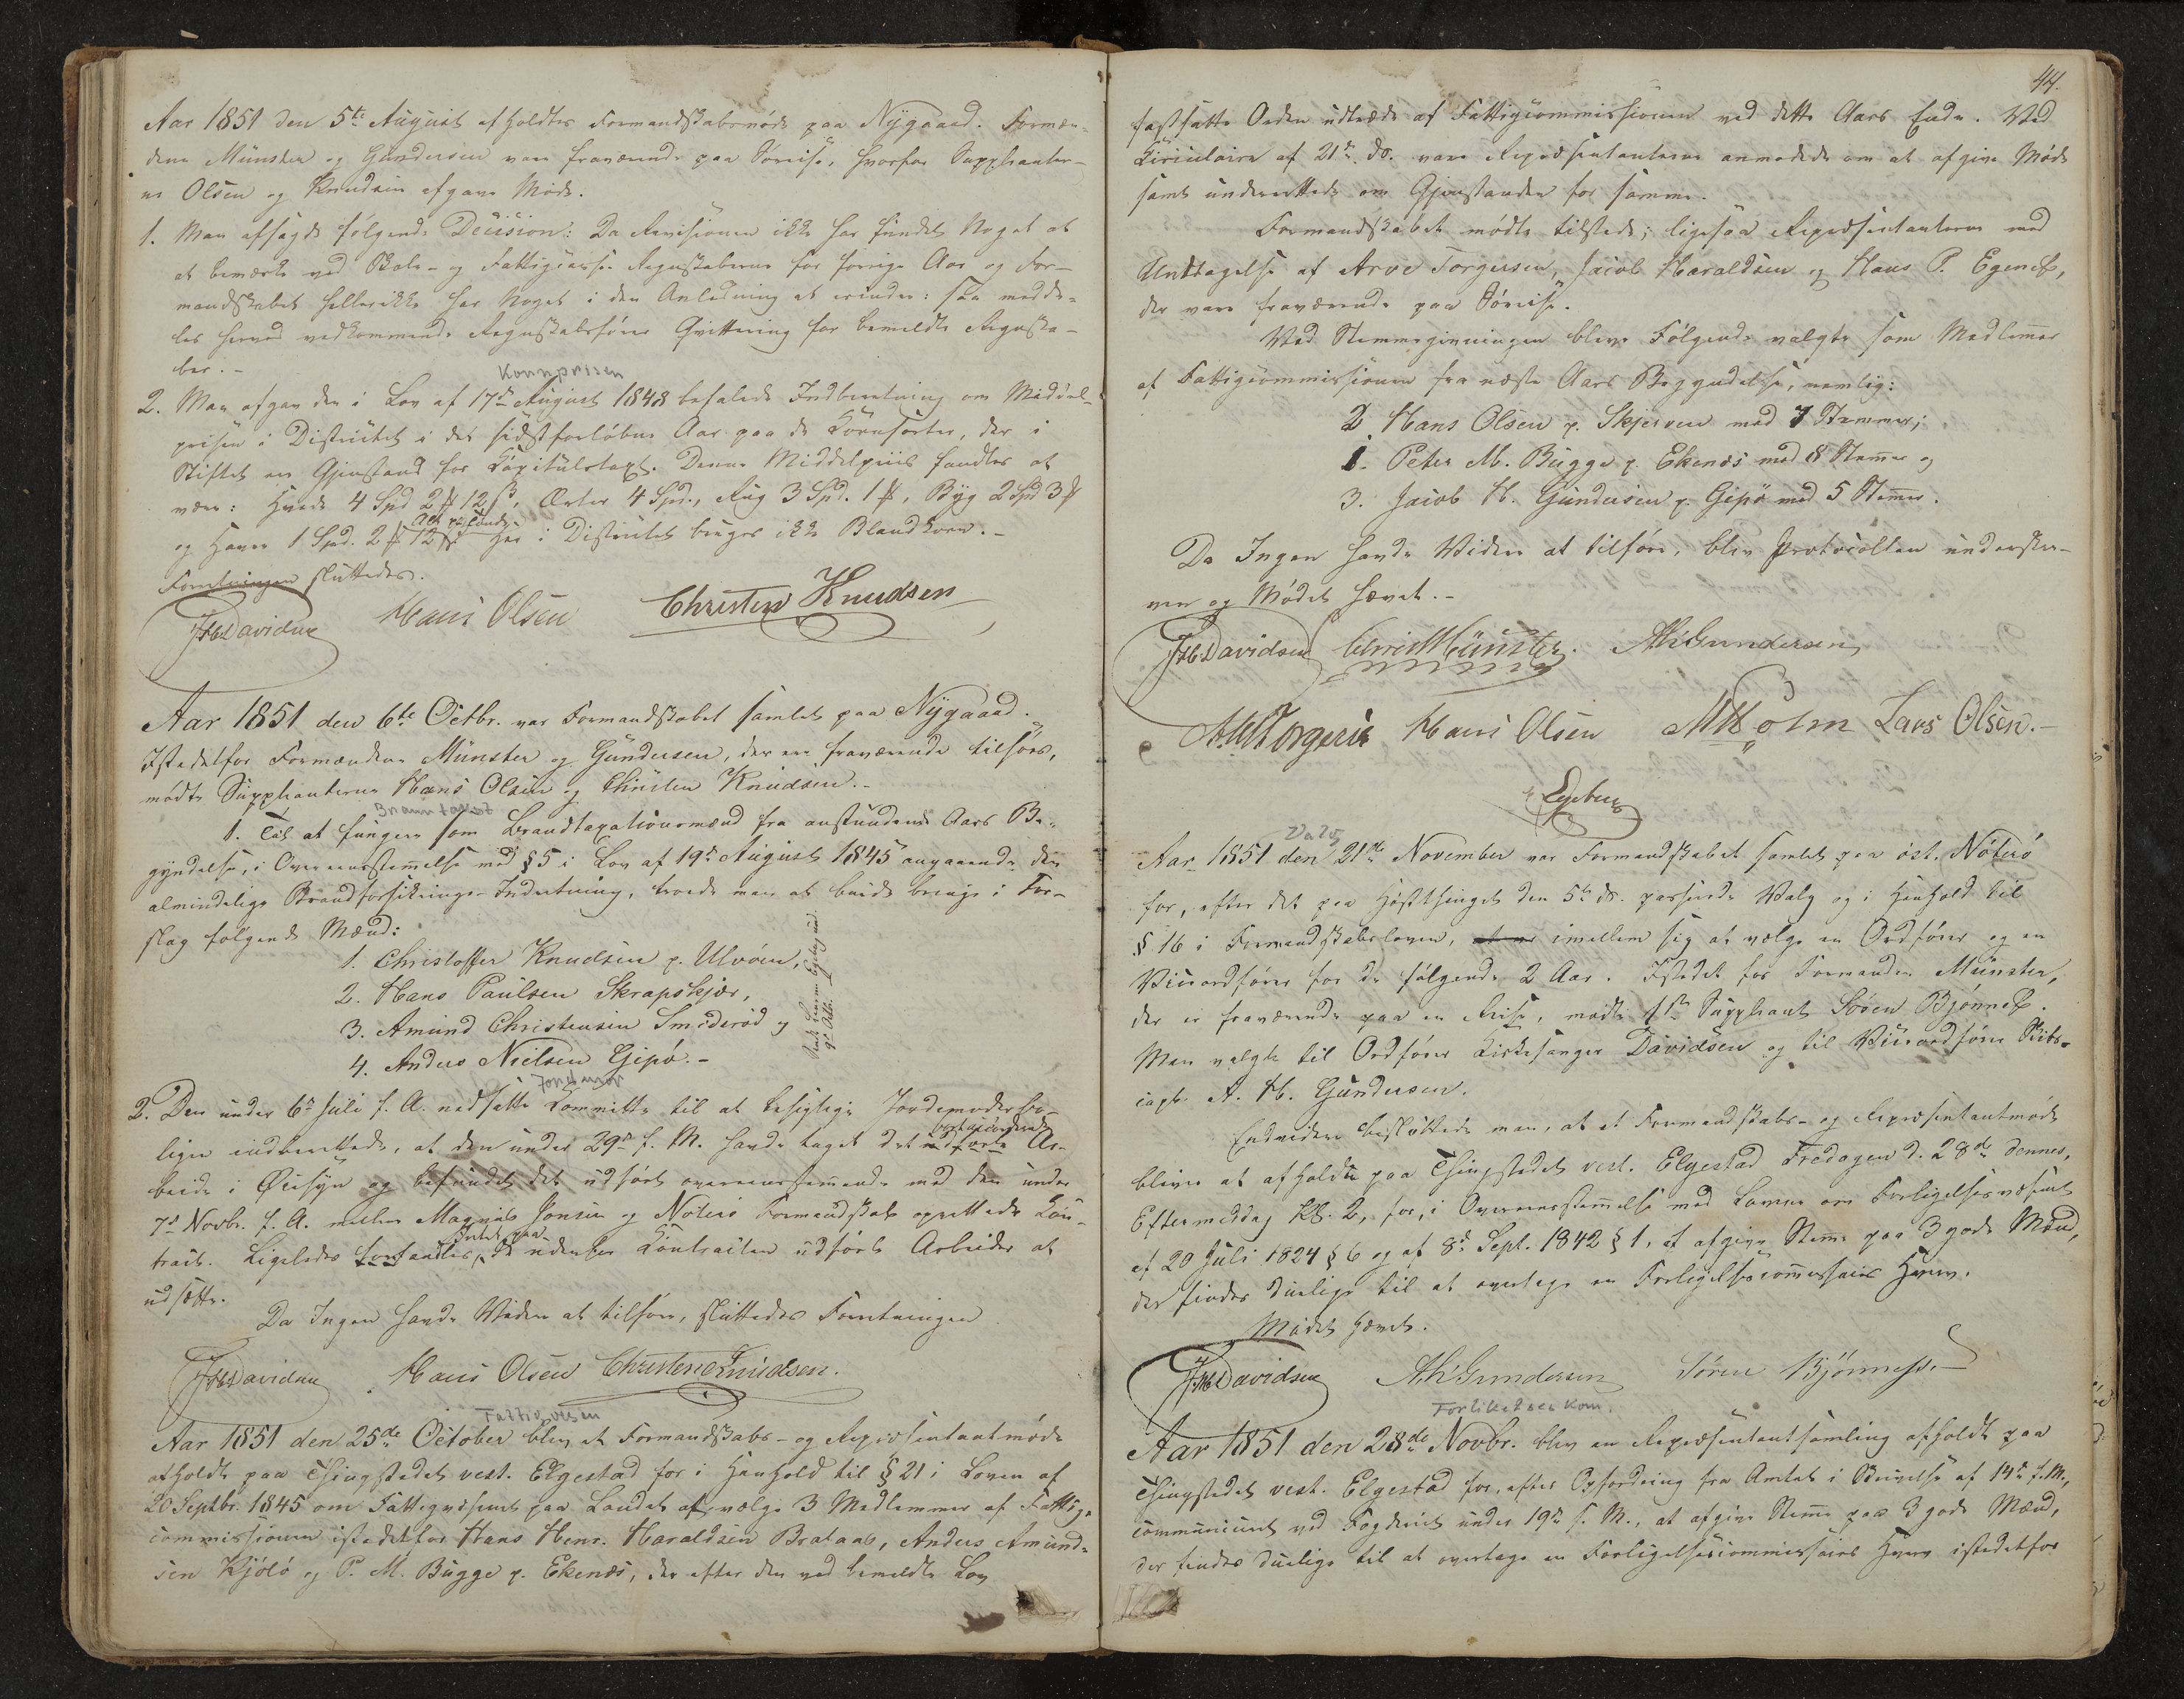 Aar 1851 den 5te August afholdtes Formandskabsmøde paa Nÿgaard. Formæn-
dene Münster og Gundersen vare fraværende paa Søreise, hvorfor Supplianter-
ne Olsen og Knudsen afgave Møde.
1. Man afsagde følgende Decision: Da Revisionen ikke har fundet Noget at
at bemærke ved Skole- og Fattigcasse Regnskaberne for forrige Aar og For-
mandskabet hellerikke har Noget i den Anledning at erindre: saa medde-
les herved vedkommende Regnskabsfører Qvittering for bemeldte Regnska-
ber.-
Kornprisen
2. Man afgav den i Lov af 17de August 1848 befalede Indberetning om Middel-
prisen i Districtet i det sidstforløbne Aar paa de Kornsorter, der i
Stiftet ere Gjenstand for Capitulstaxt. Denne Middelpriis fandtes at
være: Hvede 4 Spd 2 ₰ 12 ß, Erter 4 Spd., Rug 3 Spd. 1 ₰, Byg 2 Spd 3 ₰
og Havre 1 Spd. 2 ₰ 12 ß Her i Districtet bruges ikke Blandkorn.-
Forretningen sluttedes.
JHDavidsen Hans Olsen Christen Knudsen
Aar 1851 den 6te Octbr. var Formandskabet samlet paa Nÿgaard.
Istedetfor Formændene Münster og Gundersen, der ere fraværende tilsøes,
mødte Supplianterne Hans Olsen og Christen Knudsen.-
Branntakst
1. Til at fungere som Brandtaxationsmænd fra anstundende Aars Be-
gyndelse, i Overeensstemmelse med § 5 i Lov af 19de August 1845 angaaende den
almindelige Brandforsikrings-Indretning, troede man at burde bringe i For-
slag følgende Mænd:
1. Christoffer Knudsen p. Ulvøen,
2. Hans Paulsen Skrapskjær,
3. Amund Christensen Smiderød og
4. Anders Nielsen Gipø.-
Jordmor
2. Den under 6te Juli f. A. nedsatte Committe til at besigtige Jordemoderbo-
ligen indberettede, at den under 29de f. M. havde taget det udførte Ar-
beide i Øiesyn og befundet det udført overeensstemmende med den under
7de Novbr. f. A. mellem Magnus Jonsen og Nøterø Formandskab oprettede Con-
tract. Ligeledes fandtes Intet paa de udenfor Contracten udførte Arbeider at
udsætte.
Da Ingen havde Videre at tilføre, sluttedes Forretningen
JHDavidsen Hans Olsen Christen Knudsen.
Fattigvesen
Aar 1851 den 25de October blev et Formandskabs- og Repræsentantmøde
afholdt paa Thingstedet vest. Elgestad for i Henhold til § 21 i Loven af
20 Septbr. 1845 om Fattigvæsenet paa Landet at vælge 3 Medlemmer af Fattig-
commissionen istedetfor Hans Henr. Haraldsen Brataas, Anders Amund-
sen Kjølø og P. M. Bugge p. Ekenæs, der efter den ved bemeldte Lov
44.
fastsatte Orden udtræde af Fattigcommissionen ved dette Aars Ende. Ved
Circulaire af 21de ds. vare Repræsentanterne anmodede om at afgive Møde
samt underrettede om Gjenstanden for samme.
Formandskabet mødte tilstede; ligesaa Repræsentanterne med
Undtagelse af Arve Torgersen, Jacob Haraldsen og Hans P. Egenæs,
der vare fraværende paa Søreise.
Ved Stemmegivningen bleve Følgende valgte som Medlemmer
af Fattigcommissionen fra næste Aars Begyndelse, nemlig:
2 Hans Olsen p. Skjerven med 7 Stemmer;
1. Peter M. Bugge p. Ekenæs med 8 Stemmer og
3. Jacob H. Gundersen p. Gipø med 5 Stemmer.
Da Ingen havde Videre at tilføre, blev Protocollen underskre-
ven og Mødet hævet.-
JHDavidsen Chris Münster. AHGundersen
Hans Olsen Holm Lars Olsen.-
Valg
Aar 1851 den 21de November var Formandskabet samlet paa øst. Nøterø
for, efter det paa Høstthinget den 5te ds. passerede Valg og i Henhold til
§ 16 i Formandskabsloven, imellem sig at vælge en Ordfører og en
Viceordfører for de følgende 2 Aar. Istedet for Formanden Münster,
der er fraværende paa en Reise, mødte 1ste Suppliant Søren Bjønnes.
Man valgte til Ordfører Kirkesanger Davidsen og til Viceordfører Skibs-
capt. A. H. Gundersen.
Endvidere besluttede man, at et Formandskabs- og Repræsentantmøde
bliver at afholde paa Thingstedet vest. Elgestad Fredagen d. 28de dennes,
Eftermiddag Kl. 2, for, i Overeensstemmelse med Lovene om Forligelsesvæsenet
af 20 Juli 1824 § 6 og af 8de Sept. 1842 § 1, at afgive Stemme paa 3 gode Mænd,
der findes duelige til at overtage en Forligelsescommissairs Hverv.
Mødet hævet.
JHDavidsen AHGundersen Søren Bjønnes.-
Forlikelses kom.
Aar 1851 den 28de Novbr. blev en Repræsentantsamling afholdt paa
Thingstedet vest. Elgestad for, efter Opfordring fra Amtet i Skrivelse af 14de f. M.,
communiceret ved Fogderiet under 19de f. M., at afgive Stemme paa 3 gode Mænd,
der findes duelige til at overtage en Forligelsescommissairs Hverv istedetfor